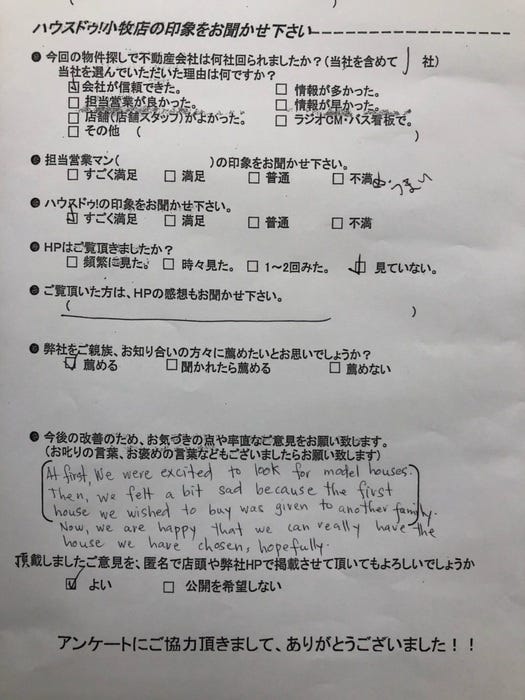 ハウスドゥ!小牧店の印象をお聞かせ下さい
今回の物件探しで不動産会社は何社回られましたか?(当社を含めて 社)
当社を選んでいただいた理由は何ですか?
☑会社が信頼できた。 □ 情報が多かった。
□ 担当営業が良かった。 □ 情報が早かった。
□ 店舗(店舗スタッフ)がよかった。 □ ラジオCM・バス看板で。
□ その他 ( )
担当営業マン( )の印象をお聞かせ下さい。
□ すごく満足 □ 満足 □ 普通 □ 不満
ハウスドゥ!の印象をお聞かせ下さい。
☑すごく満足 □ 満足 □ 普通 □ 不満
HPはご覧頂きましたか?
□ 頻繁に見た。 □ 時々見た。 □ 1~2回みた。 ☑ 見ていない。
ご覧頂いた方は、HPの感想もお聞かせ下さい。
( )
弊社をご親族、お知り合いの方々に薦めたいとお思いでしょうか?
☑ 薦める □ 聞かれたら薦める □ 薦めない
今後の改善のため、お気づきの点や率直なご意見をお願い致します。
(お叱りの言葉、お褒めの言葉などもございましたらお願い致します)
At first, We were excited to look for model houses.
Then, we felt a bit sad because the first
house we wished to buy was given to another family.
Now, we are happy that we can really have the
house we have chosen, hopefully.
頂戴しましたご意見を、匿名で店頭や弊社HPで掲載させて頂いてもよろしいでしょうか
☑ よい □ 公開を希望しない
アンケートにご協力頂きまして、ありがとうございました!!